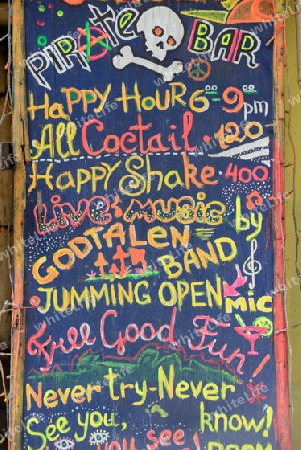 PIRATE BAR
HAPPY HOUR 6-9pm
All Coctail • 120
HAPPY SHAKE • 400
LIVE MUSIC by
GODTALEN BAND
JUMMING OPEN MIC
Feel Good Fun!
NEVER try - NEVER
SEE you, know!
you see